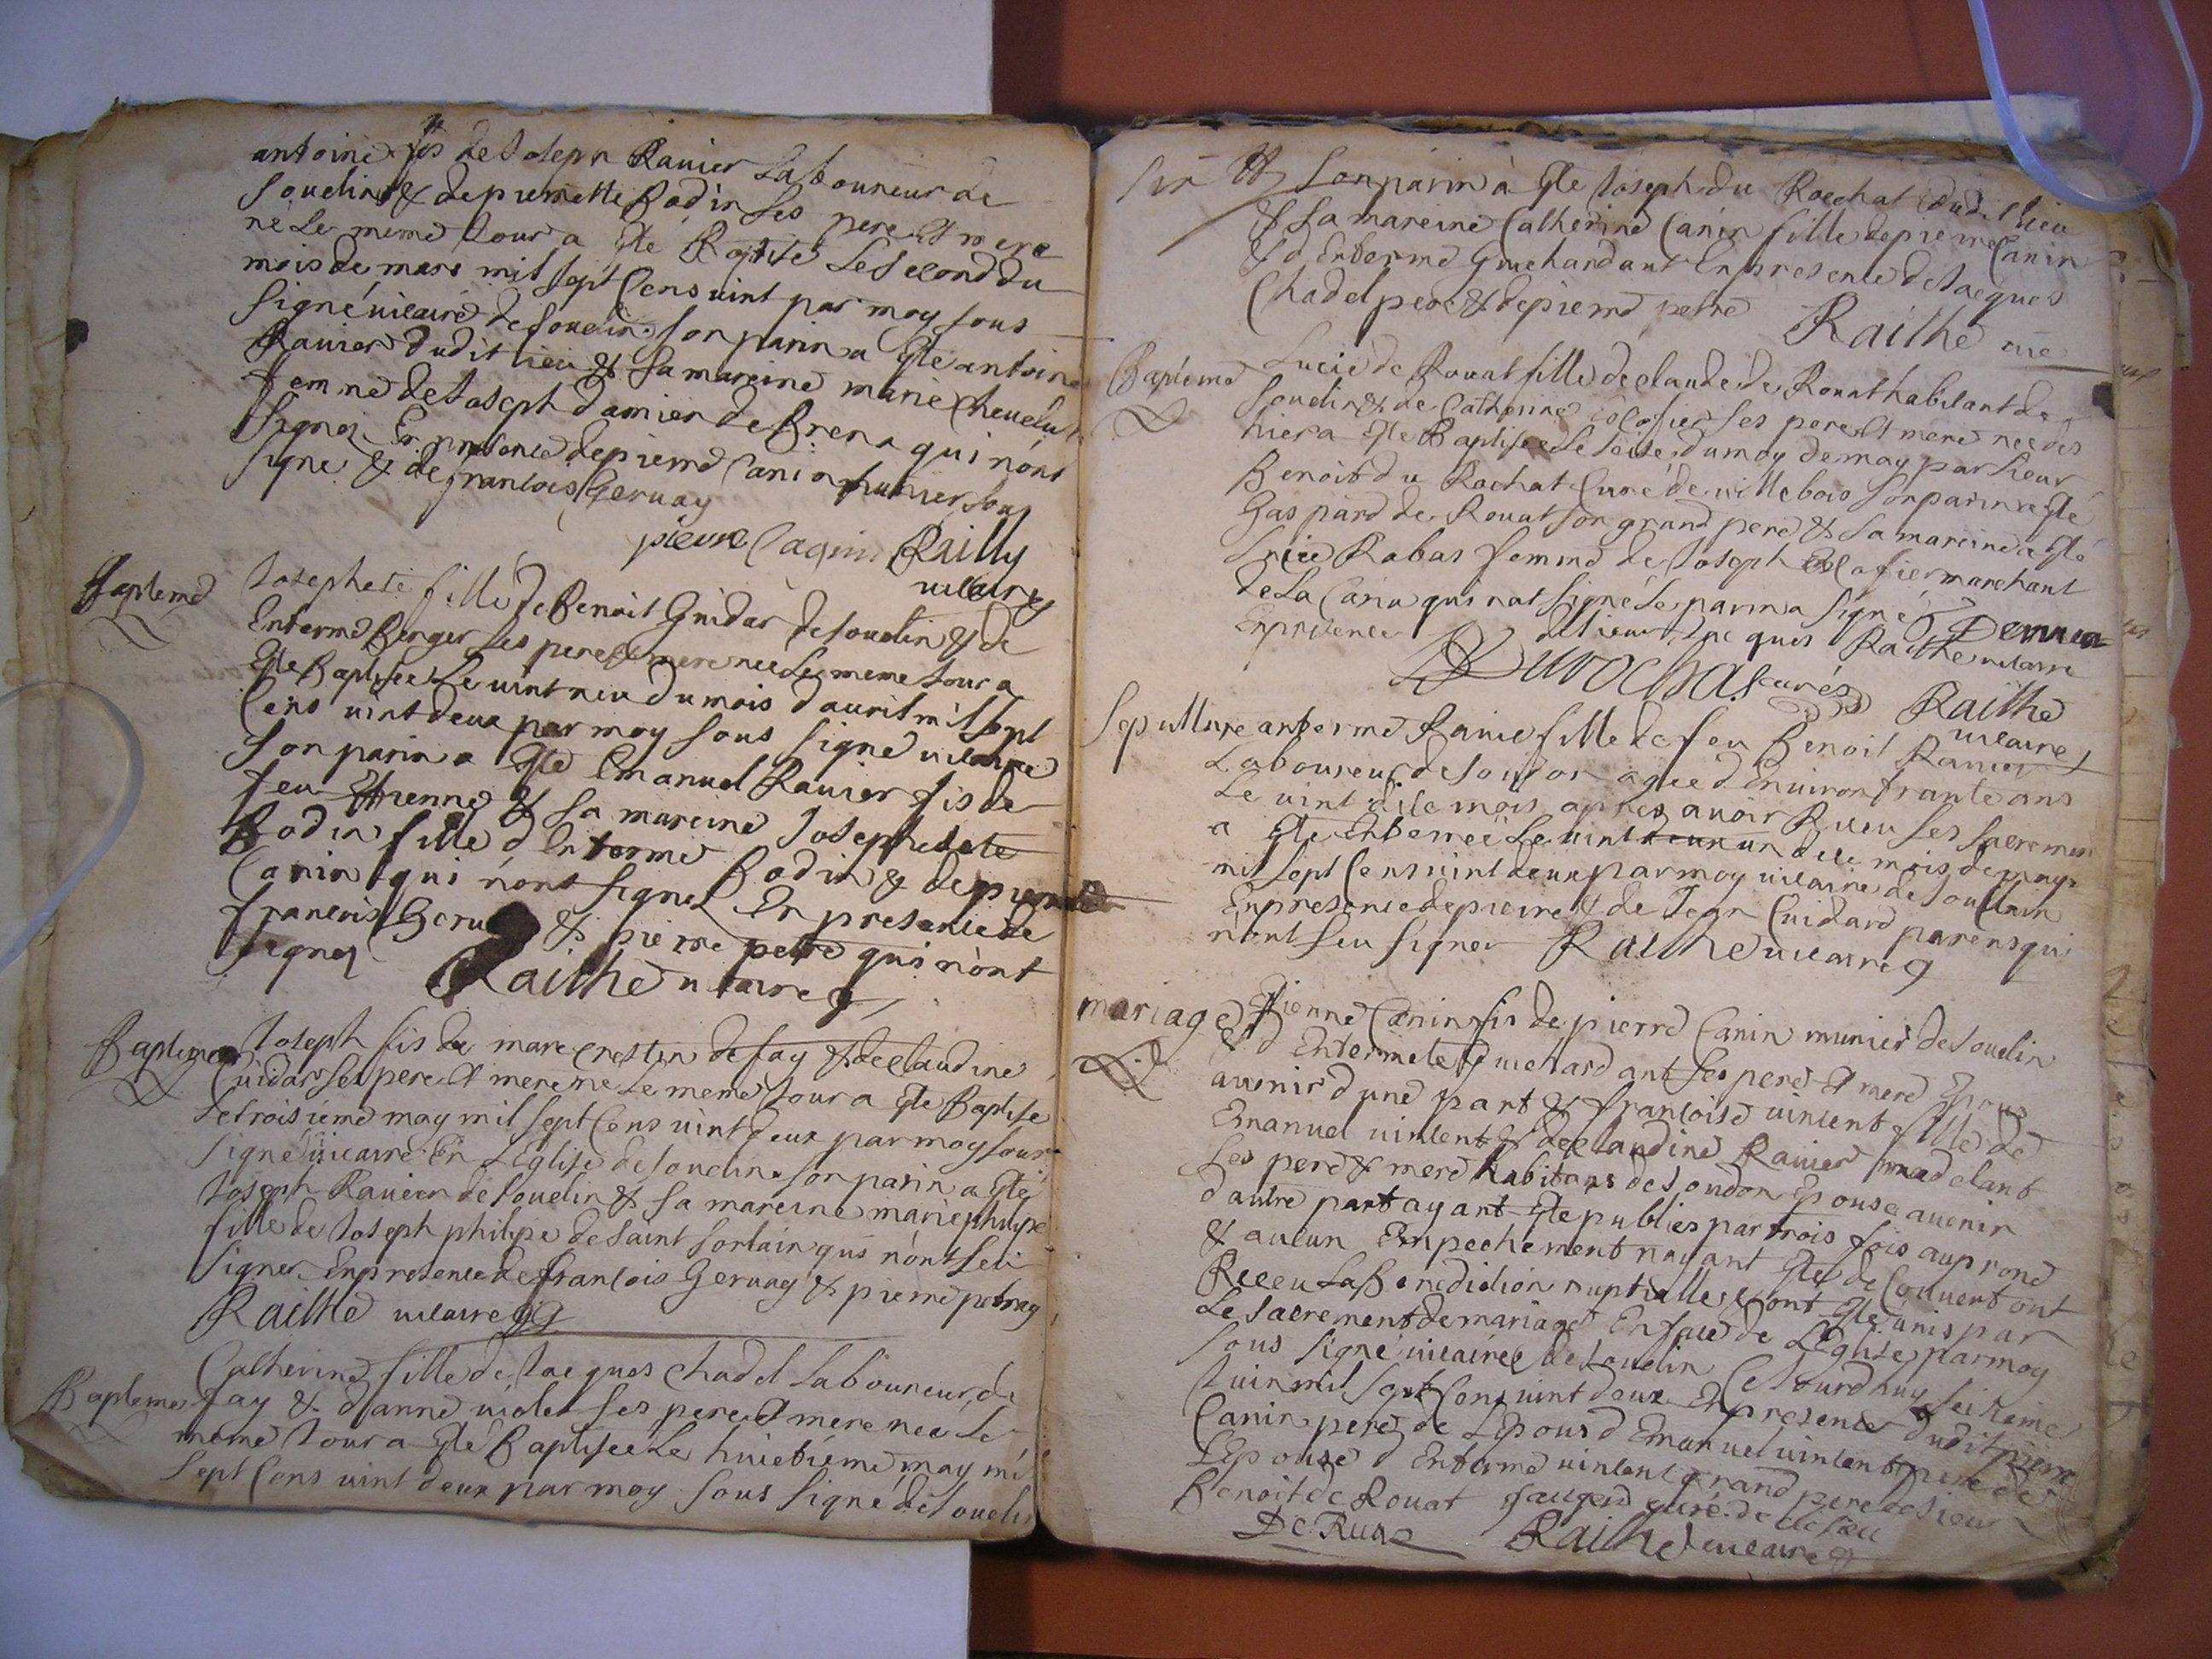 antoine fis de Joseph Ravier Laboureur de
Souclin & de pierrette Bodin ses pere et mere
né le meme Jour a Eté Baptisé Le second du
mois de mars mil sept Cens vint par moy sous
signé vicaire de souclin son parin a Eté antoine
Ravier dudit lieu & sa mareine marie Chevelu
femme de Joseph damier de Brena qui n'ont
signez En presence de pierre Canin munier sous
signé & de francois Gervay
pierre Cagnin Railly
vicaire
Bapleme Josephete fille de Benoit Guidar de souclin & de
Enterme Berger ses pere et mere nee le meme Jour a
Ete Baptisee Le vint neu du mois d'avril mil sept
Cens vint deux par moy sous signé vicaire
son parin a Ete Emanuel Ravier fis de
feu Etienne & sa mareine Josephete
Bodin fille d Enterme Bodin & de pierrette
Canin qui n'ont signez En presence de
francois Gerv & pierre petre qui n'ont
signez Railhe vicaire
Bapleme Joseph fis de marc cresten de fay & de claudine
Cuidar ses pere et mere ne le meme Jour a Ete Baptise
le troisieme may mil sept Cens vint deux par moy sous
signé vicaire En L'Eglise de souclin son parin a Eté
Joseph Ravier de souclin & sa mareine marie philipe
fille de Joseph philipe de saint sorlain qui n'ont seu
signer En presence de francois Gervay & pierre petray
Railhe vicaire
Catherine fille de Jacques Chadel Laboureur de
Bapleme fay & d'anne violet ses pere et mere nee le
meme Jour a Eté Baptisee Le huictieme may mil
sept Cens vint deux par moy sous signé de souclin
son parin à Ete Joseph du Rochat dudit lieu
& sa mareine Catherine Canin fille de pierre Canin
& d Enterme Guichardant En presence de Jacques
Chadel pere & de pierre petre
Railhe vic
Bapleme Lucie de Rouat fille de claude de Rouat habitant de
souclin & de Catherine Colofier ses pere et mere nee des
hier a Ete Baptisee le seise du moy de may par sieur
Benoit du Rochat Curé de villebois son parin a Eté
Gaspard de Rouat son grand pere & sa mareine a Eté
Lucie Rabas femme de Joseph Colofier marchant
de la Caria qui n'at signé Le parin a signé Deruat
En presence de sieur Jacques Railhe vicaire
Durochat curé Railhe
vicaire
Sepulture anterme Ravie fille de feu Benoit Ravier
Laboureur de soudon agee d Environ trante ans
Le vint dite mois apres avoir Receu ses sacremens
a Eté Enterreé Le vint un dite mois de may
mil sept Cens vint deux par moy vicaire de souclin
En presence de pierre & de Jean Cuidard parens qui
n'ont seu signer Railhe vicaire
mariage Etienne Canin fis de pierre Canin munier de souclin
& d Entermete Guichardant ses pere et mere Epoux
avenir d'une part & francoise vincent fille de
Emanuel vincent & de claudine Ravier
ses pere & mere habitans de soudon Epouse avenir
d'autre part ayant Ete publies par trois fois au prone
& aucun Empechement n'ayant Ete de Couvert ont
Receu La Benediction nuptialle & ont Eté unis par
Le sacrement de mariage En face de L'Eglise par moy
sous signé vicaire de souclin Ce Jourdhuy seizieme
Juin mil sept Cens vint deux En presence dudit pierre
Canin pere de L'Epous d Emanuel vincent pere de
L'Epouse d Enterme vincent grand pere de sieur
Benoit de Rouat
De Ruat Railhe vicaire